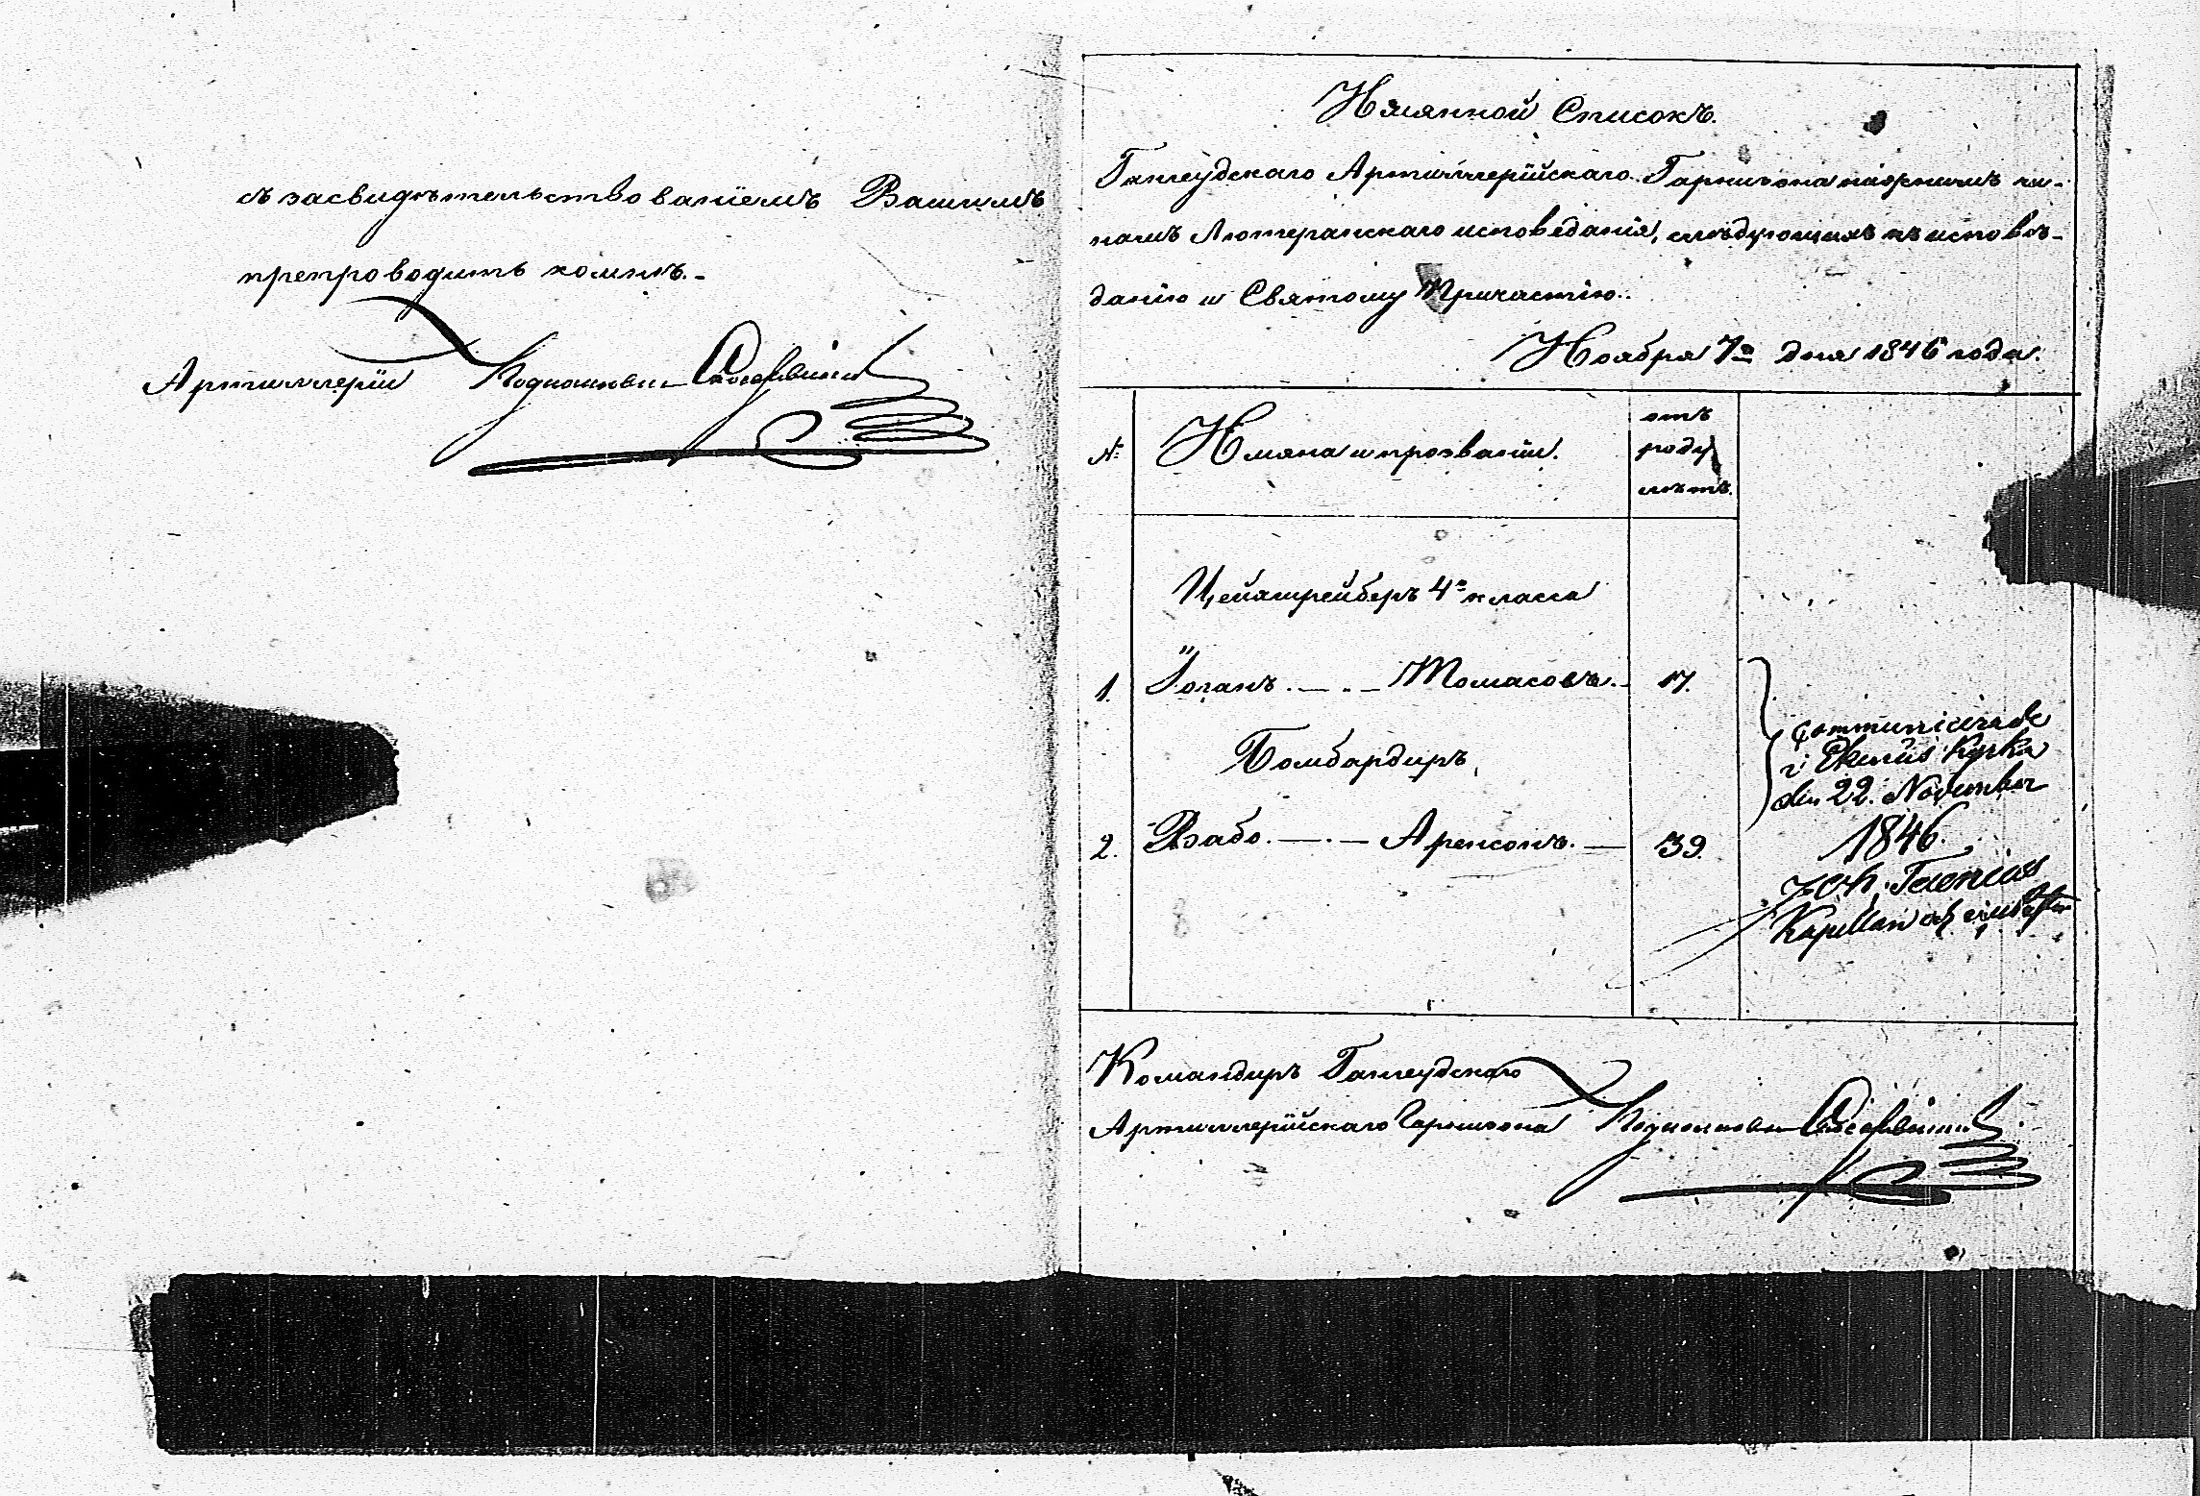 съ засвидѣтельствованіемъ Вашимъ
препроводить комнѣ.-
Артиллеріи Подполковникъ
Имянной Списокъ.
Гангеудскаго Артиллерійскаго Гарнизона нижнимъ чи-
намъ Лютеранскаго исповеданія, слѣдующихъ къ исповѣ-
данію и Святому Причастію.
Ноября 7го дня 1846 года.
№
Имяна и прозваніи.
отъ
роду
лѣтъ.
Цейгшрейберъ 4го класса
1. Іоганъ. — . — Томасовъ. - 17.
Бомбардиръ,
2. Вабо. — . — Аренсонъ. — 39.
Communicerade
i Ekenäs Kyrka
den 22. November
1846.
Joh. Taenius
Kapellan och
Командиръ Гангеудскаго
Артиллерійскаго Гарнизона Подполковникъ